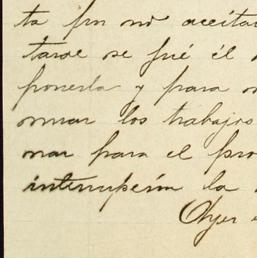 ta por no aceitar
tarde se fué él
ponerla y para
nuar los trabajos
nar para el pro
interrupción la
Ayer